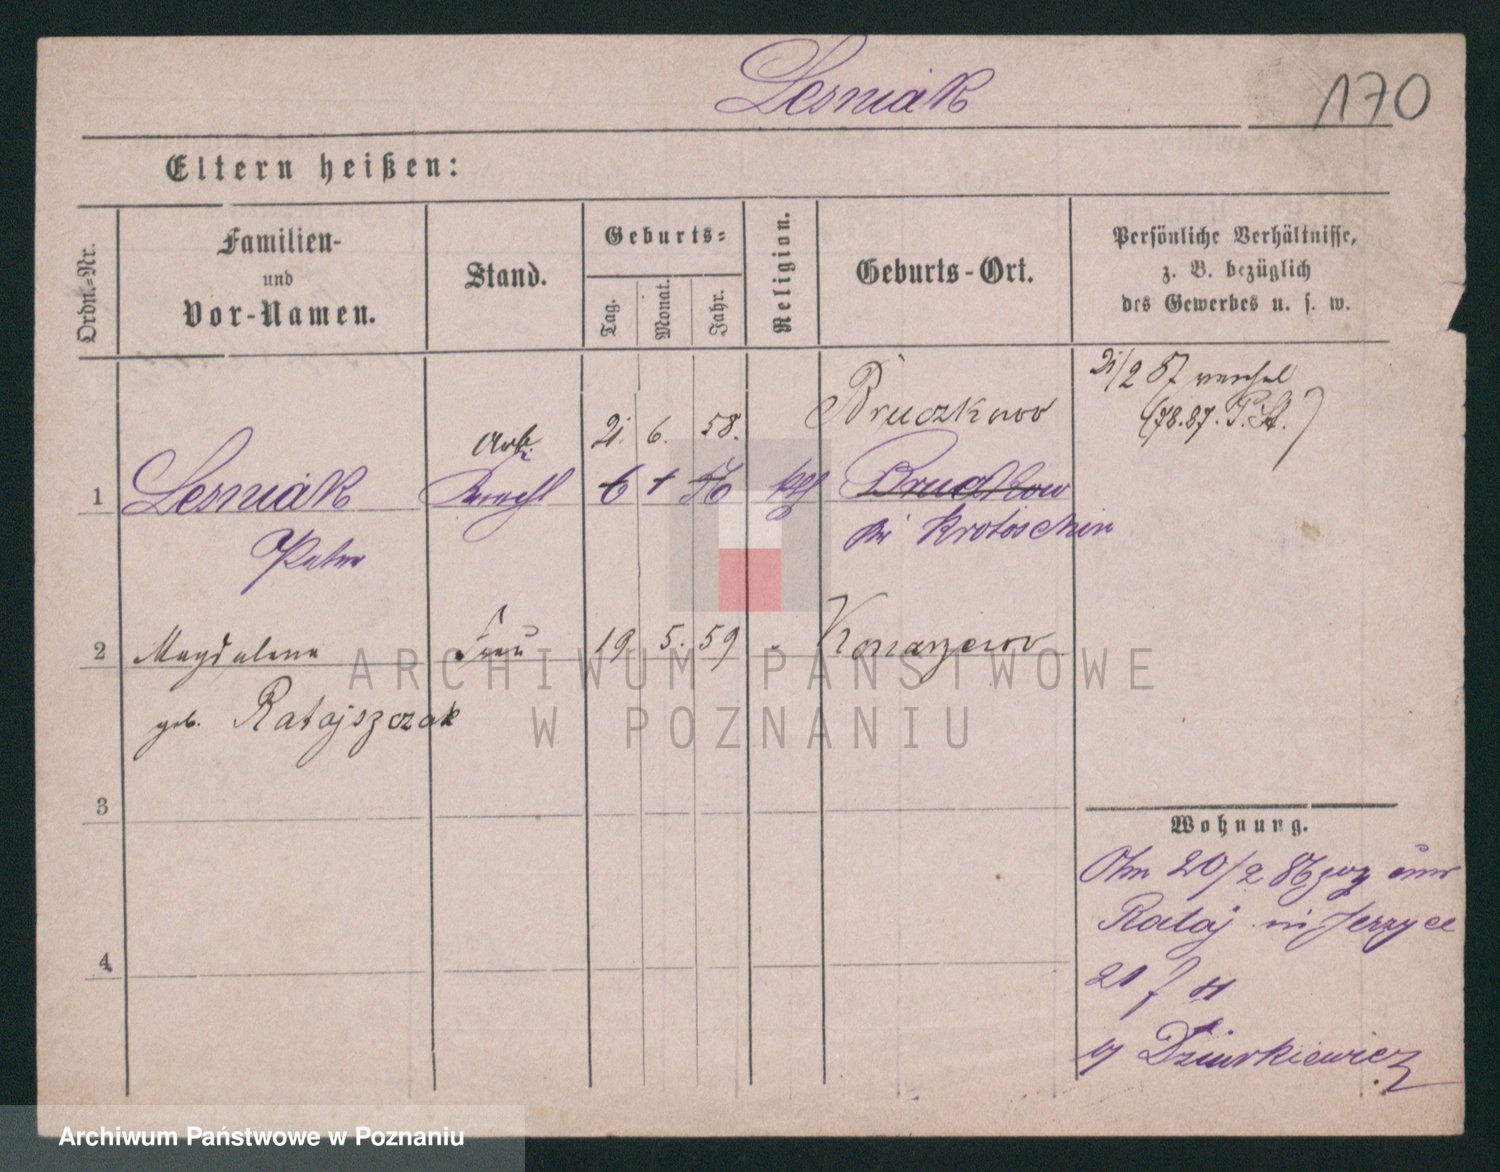 Lesniak
170
Eltern heißen:
Ordn.-Nr.
Familien-
und
Vor-Namen.
Stand.
Geburts-
Tag.
Monat.
Jahr.
Religion.
Geburts-Ort.
Persönliche Verhältnisse,
z. B. bezüglich
des Gewerbes u. s. w.
21/2 87
(78.87. P.A.)
Arb. 21. 6. 58. Bruczkow
1 Lesniak Knecht 6 kth Bruczkow
Peter bei Krotoschin
2 Magdalena Frau 19. 5. 59 " Konarzewo
geb. Ratajszczak
3
4
Wohnung.
20/2 86 zog
Rataj in Jerzyce
21
Dziurkiewicz
ARCHIWUM PAŃSTWOWE
W POZNANIU
Archiwum Państwowe w Poznaniu